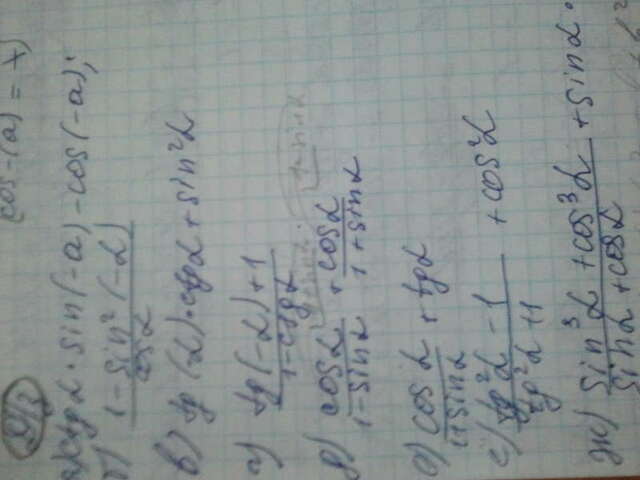 cos-(a) = +)
D/З
а) ctgα · sin(-a) - cos(-a);
б) 1 - sin²(-α) / cosα
в) tg(-α) · ctgα + sin²α
г) tg(-α) + 1 / 1 - ctgα
д) cosα / 1 - sinα + cosα / 1 + sinα
е) cosα / 1 + sinα + tgα
с) tg²α - 1 / tg²α + 1 + cos²α
ж) sin³α + cos³α / sinα + cosα + sinα ·